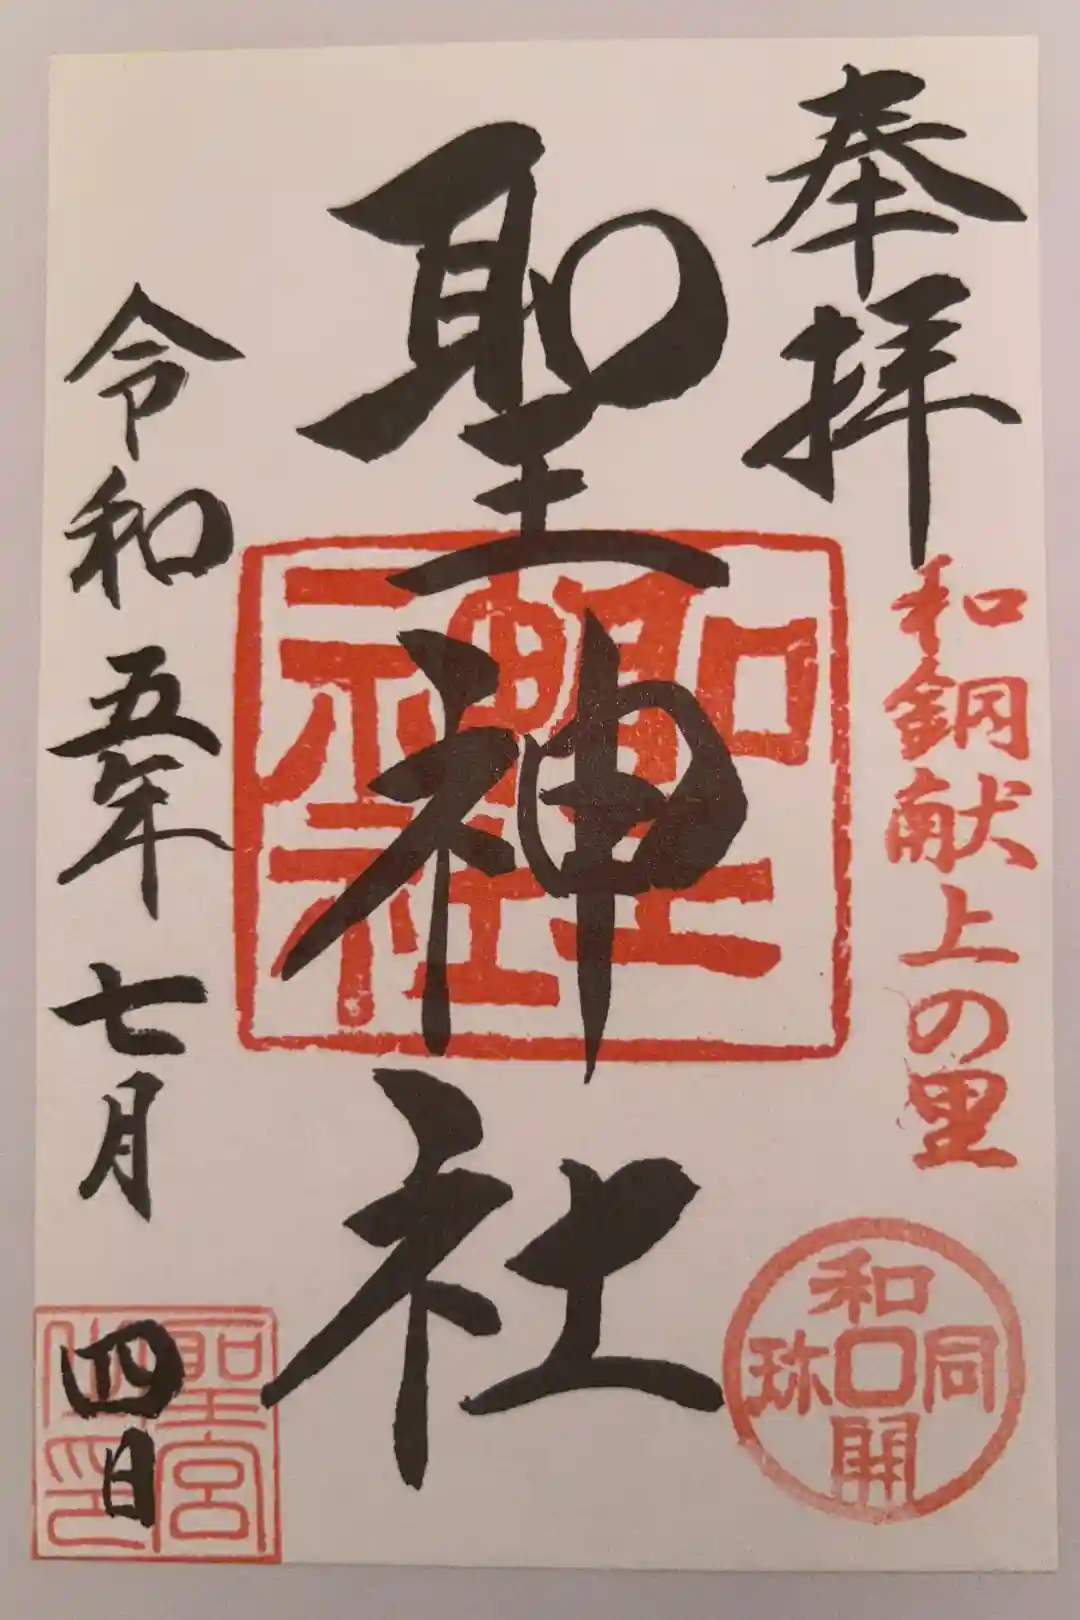 奉拝
和銅献上の里
和同開珎
聖神社
聖神社
令和五年七月四日
聖宮